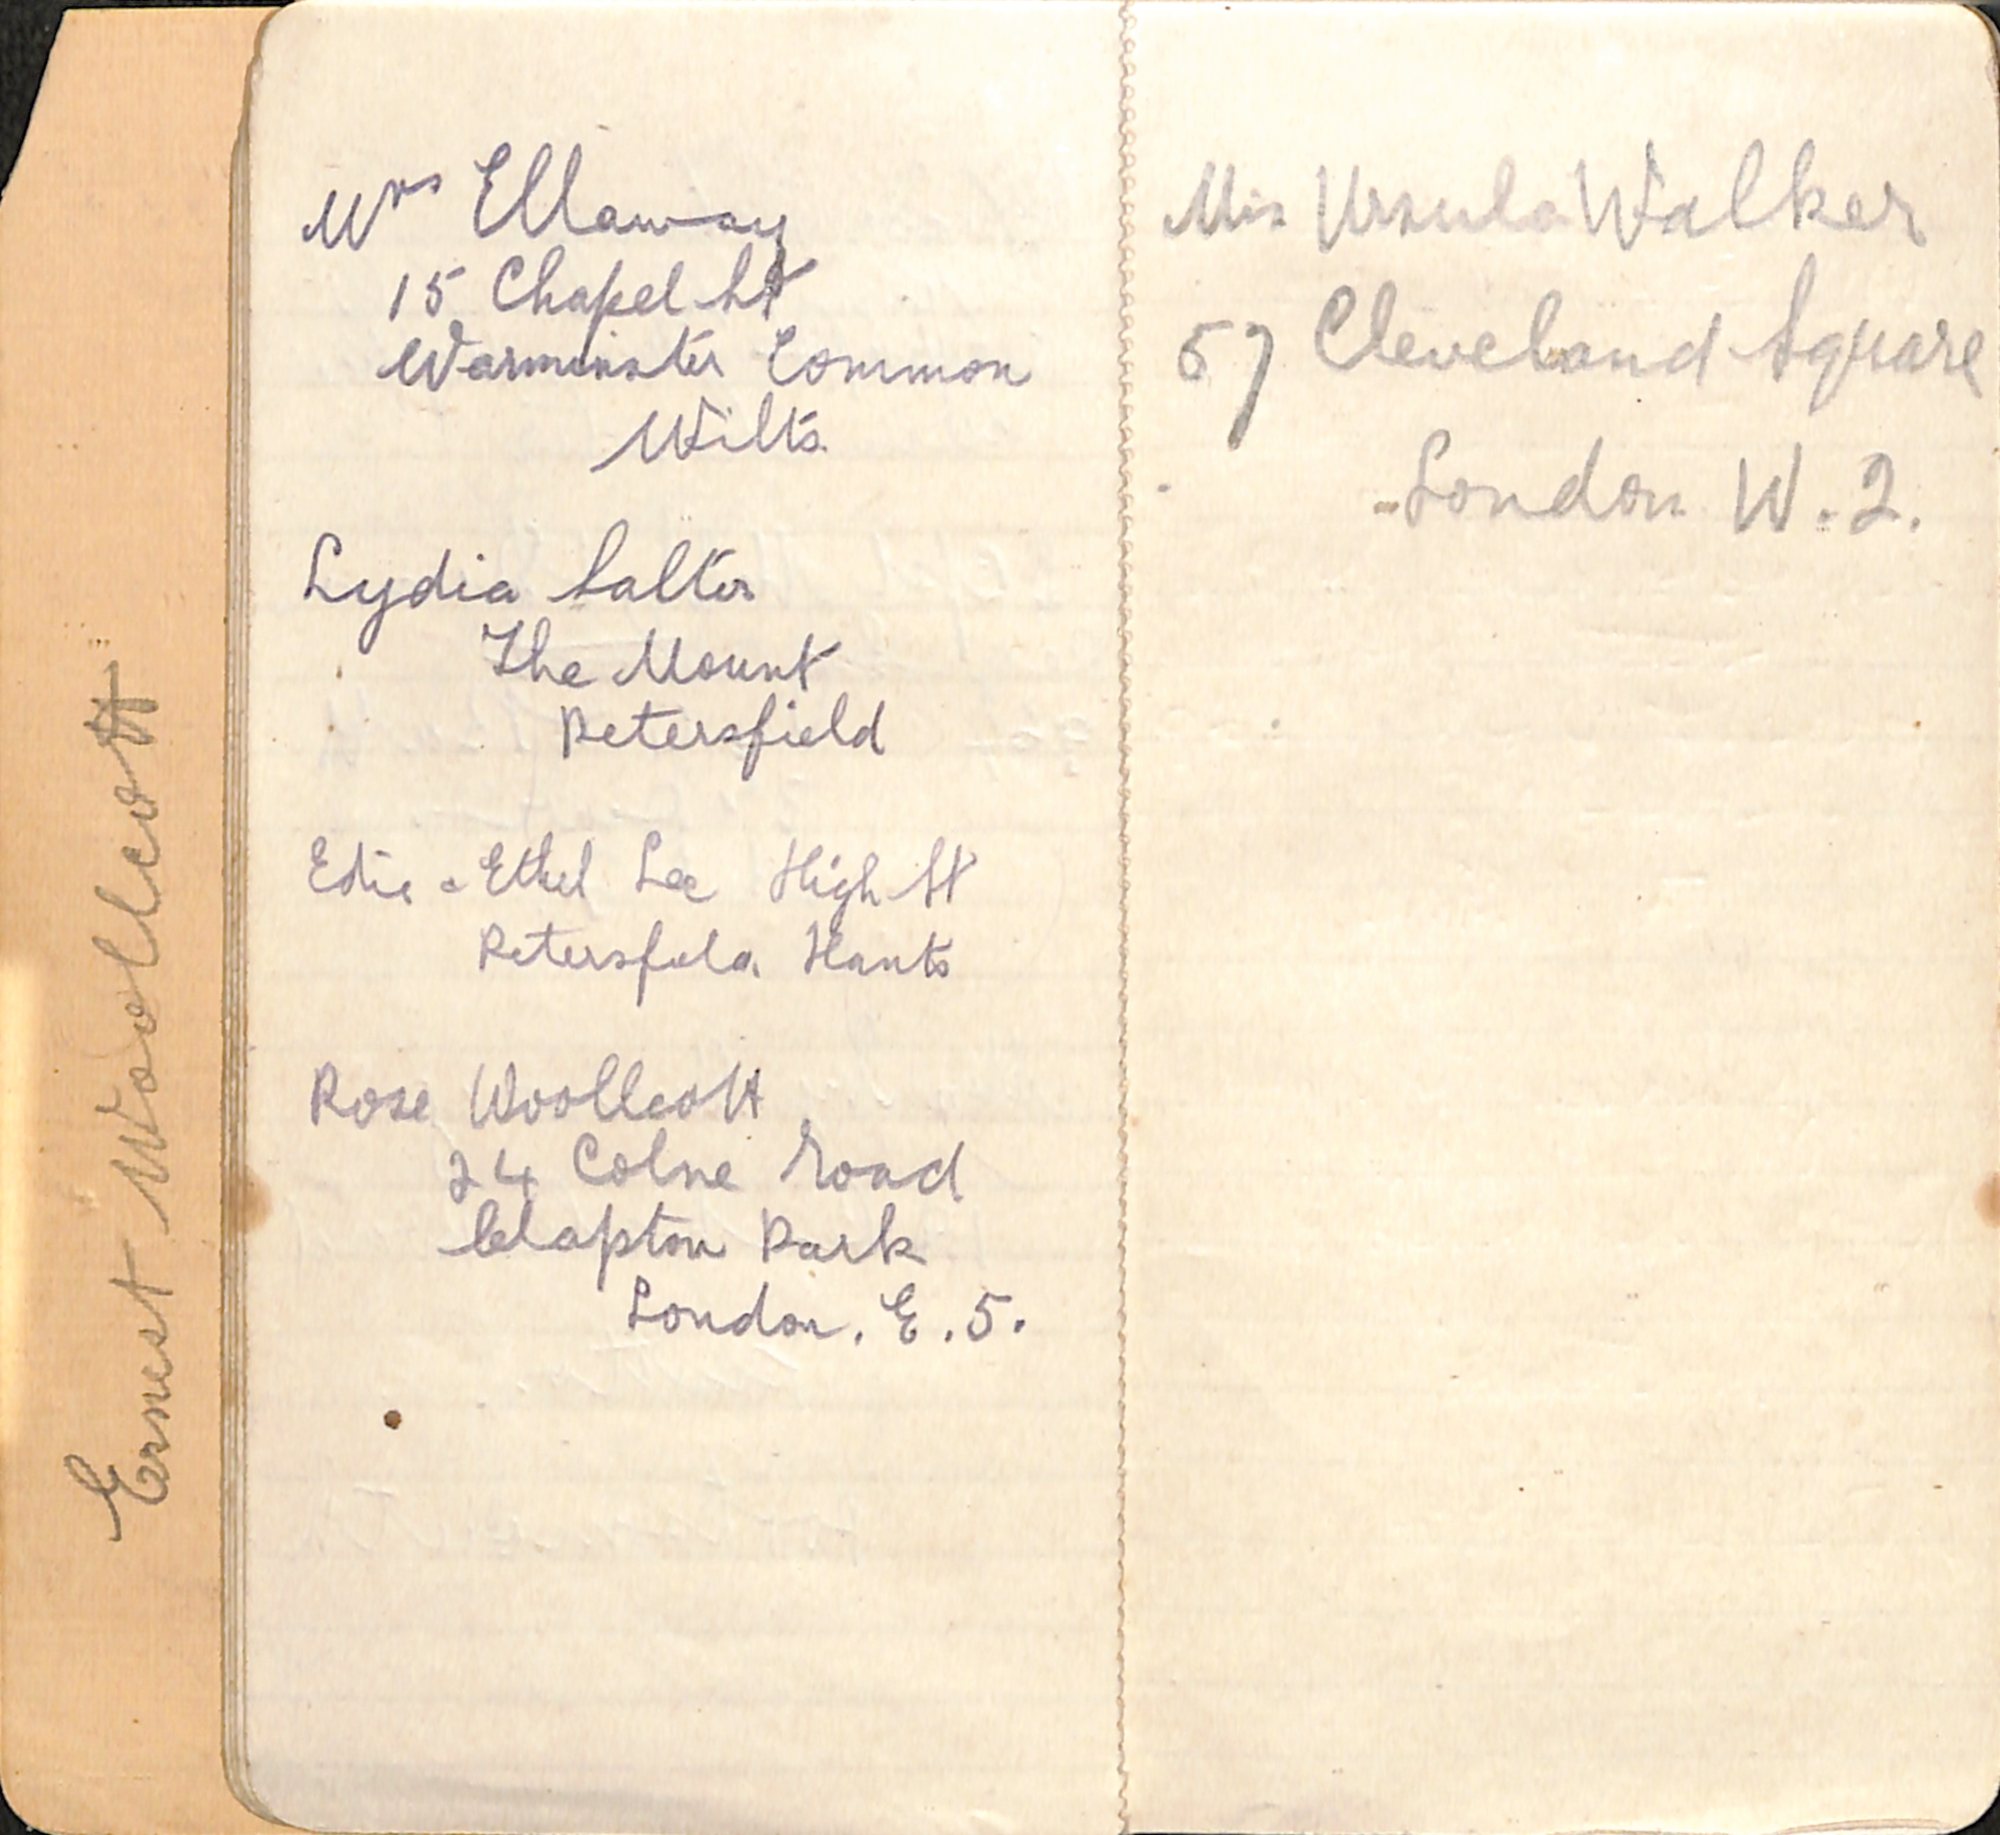 Ernest Woollcott
Mrs Ellaway
15 Chapel St
Warminster Common
Wilts.
Lydia Salter
The Mount
Petersfield
Edie & Ethel Lee High St
Petersfield Hants
Rose Woollcott
24 Colne Road
Clapton Park
London. E.5.
Miss Ursula Walker
57 Cleveland Square
London W.2.